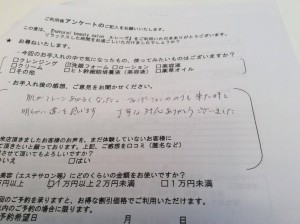 ご利用後アンケートのご記入をお願いいたします。
この度は、
をご利用いただきありがとうございます。
リラックスした時間をお過ごしいただけましたでしょうか？
お尋ねいたします。
・今回のお手入れの中で気になったもの、使ってみたいものはございますか？
□クレンジング □洗顔フォーム □ローション □美容液
□クリーム □ヒト幹細胞培養液（美容液） □薬草オイル
□その他
・お手入れ後の感想、ご意見をお聞かせください。
明るい 違いを感じます 丁寧な対応ありがとうございました
来店頂きましたお客様のお声を、まだ体験していないお客様に
て頂きたいと願っております。上記、ご感想を口コミ（匿名など）
させて頂いてもよろしいですか？
いいえ □はい
美容（エステサロン等）にどのくらいの金額をお使いですか？
万円以上 １万円以上２万円未満 □１万円未満
回のご予約を承りますと、お得な割引価格でご利用いただけます。
以内のご予約の場合に限ります。
ご予約希望日 月 日